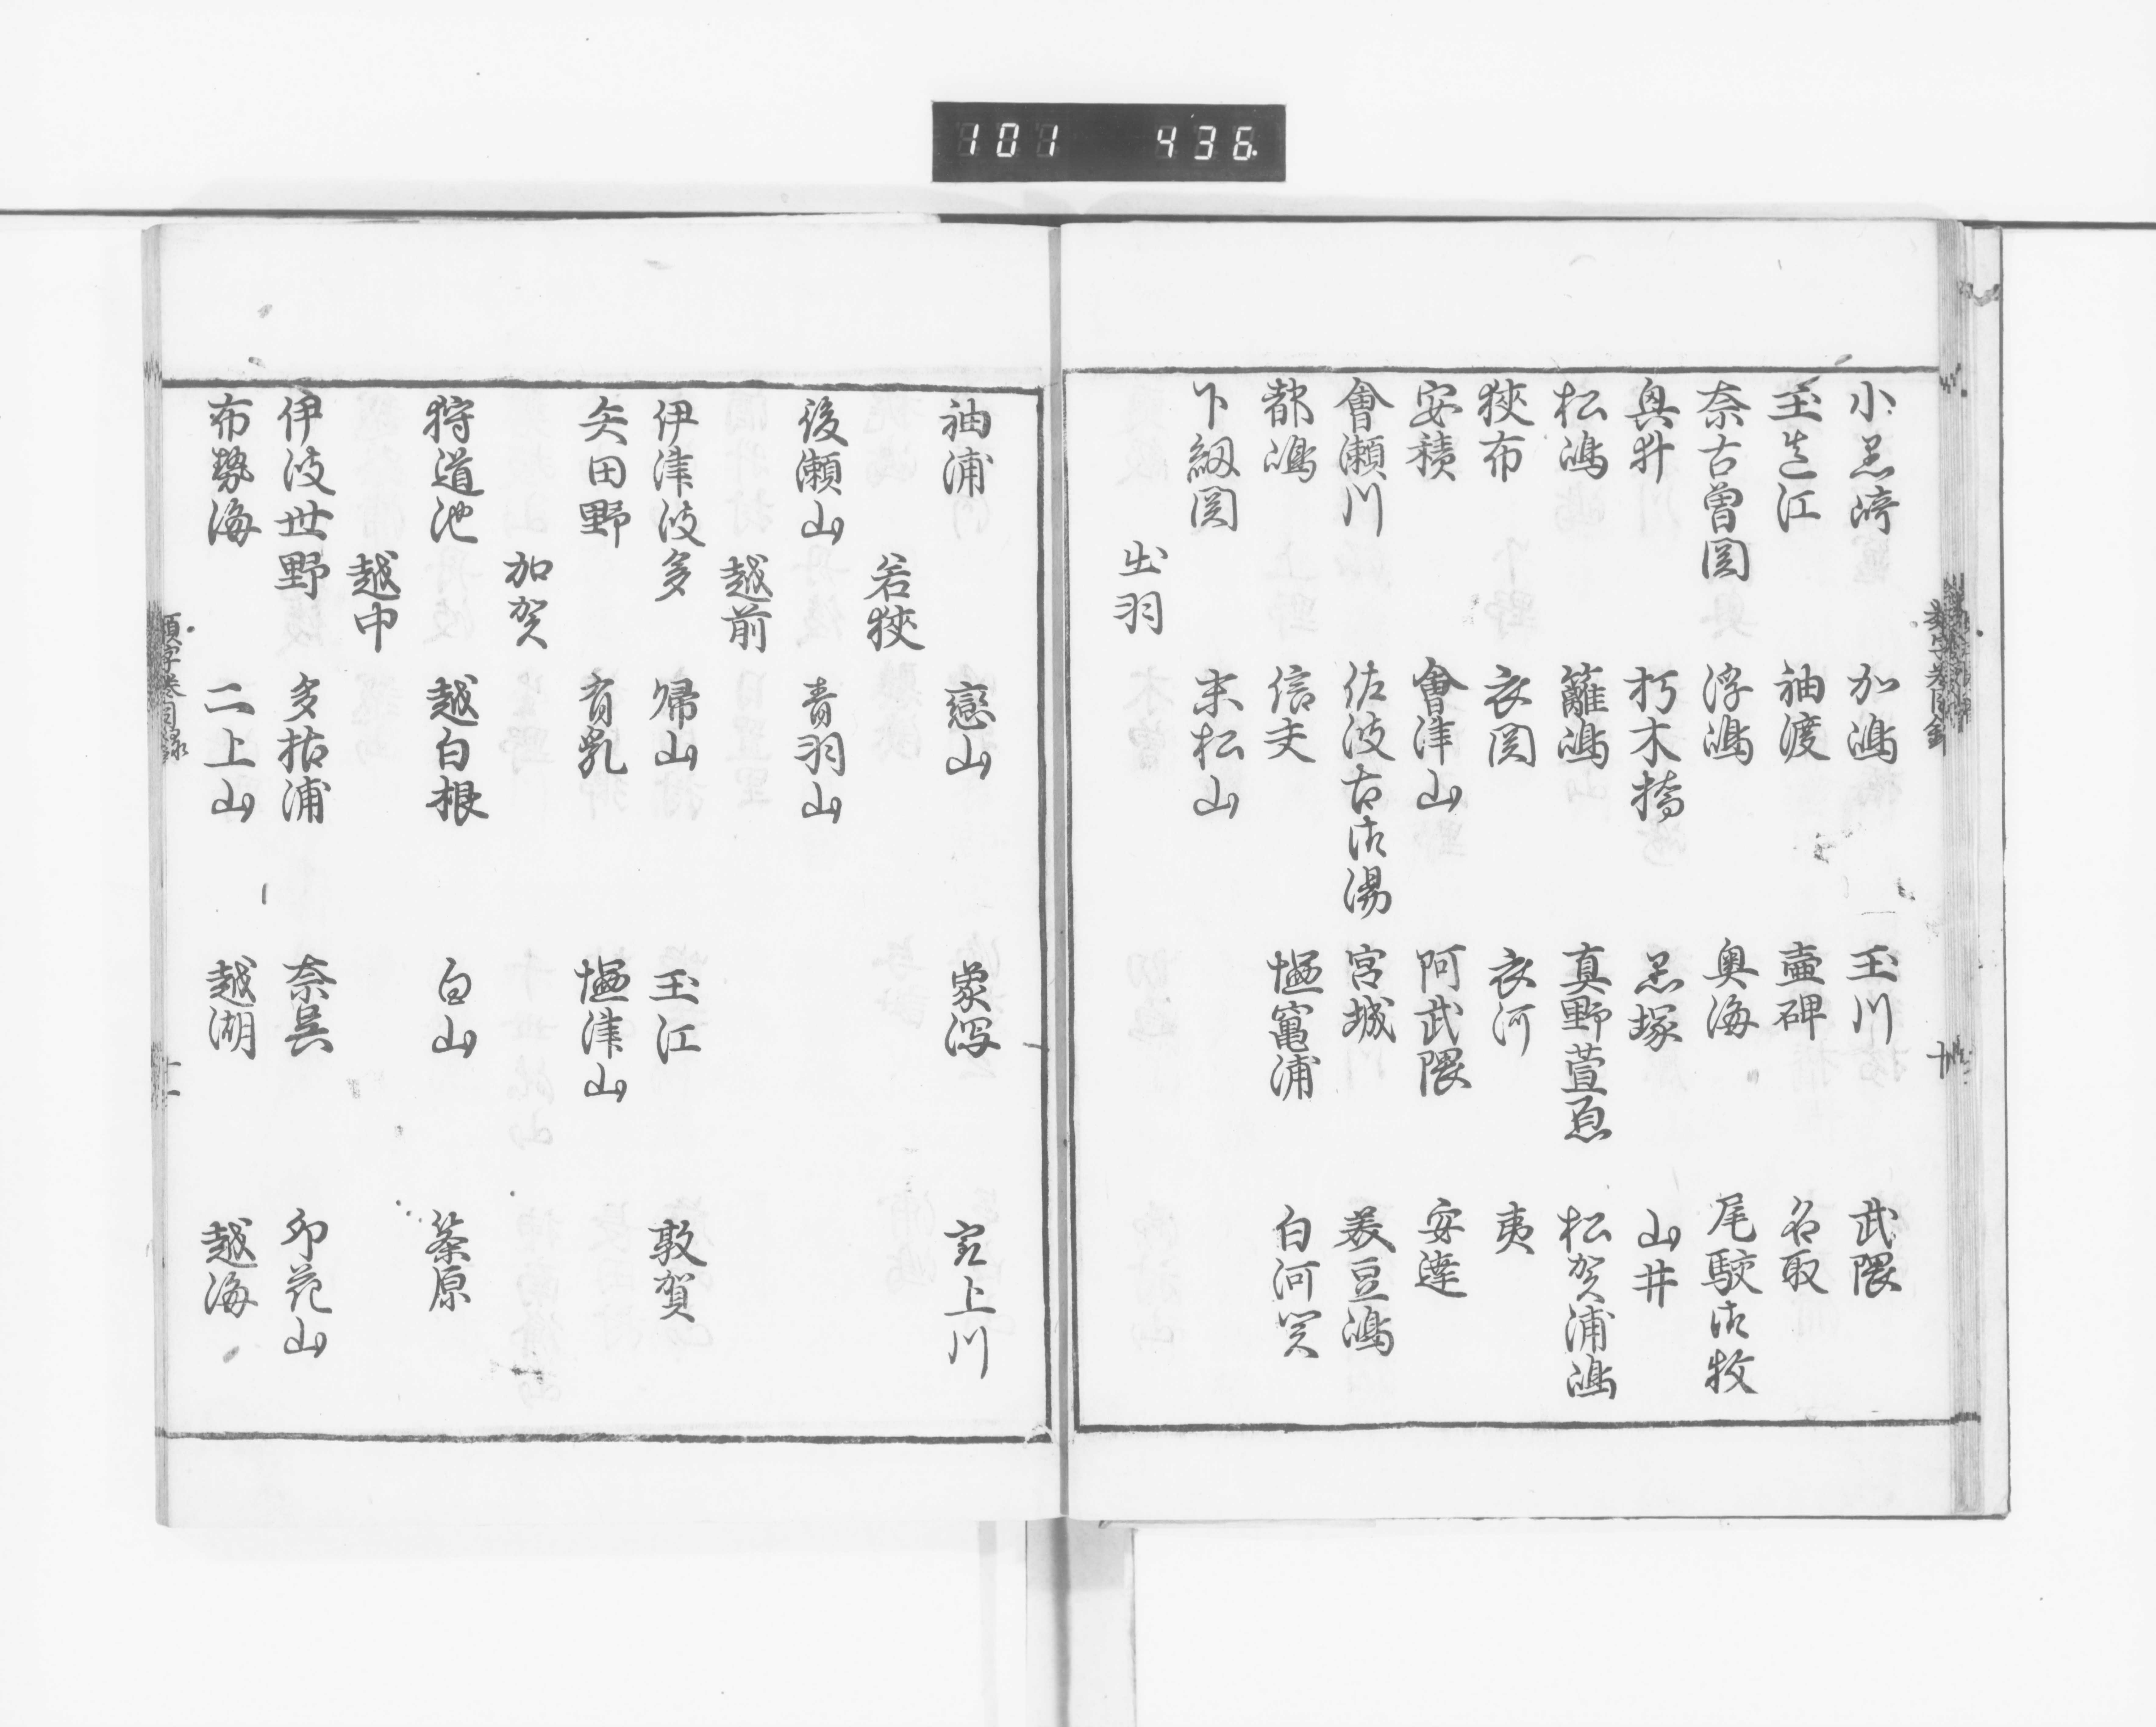 101 436
小黒崎 加嶋 玉川 武隈
玉造江 袖渡 壷碑 名取
奈古曽関 浮嶋 奥海 尾駮御牧
奥井 朽木橋 黒塚 山井
松嶋 籬嶋 真野萱原 松賀浦嶋
狭布 衣関 衣河 夷
安積 會津山 阿武隈 安達
會瀬川 佐波古御湯 宮城 美豆嶋
都嶋 信夫 塩竃浦 白河関
下紐関 末松山
出羽
袖浦 戀山 象潟 最上川
若狭
後瀬山 青羽山
越前
伊津波多 帰山 玉江 敦賀
矢田野 有乳 塩津山
加賀
狩道池 越白根 白山 篠原
越中
伊波世野 多祜浦 奈呉 卯花山
布勢海 二上山 越湖 越海
類字巻目録
十一